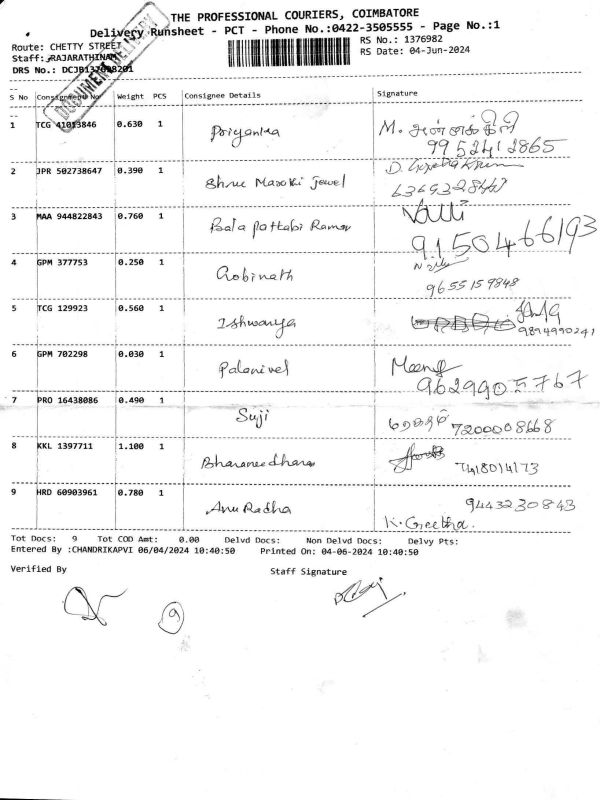 THE PROFESSIONAL COURIERS, COIMBATORE
Delivery Runsheet - PCT - Phone No.:0422-3505555 - Page No.:1
Route: CHETTY STREET
RS No.: 1376982
Staff: RAJARATHINAM
RS Date: 04-Jun-2024
DRS No.: DCJB137698201
DOCUMENT DELIVERY
S No Consignment No Weight PCS Consignee Details Signature
1 TCG 41013846 0.630 1 Priyanka M. அன்னக்கிளி
9952412865
2 JPR 502738647 0.390 1 Shree Maruti jewel D.
3 MAA 944822843 0.760 1 Bala Pattabi Raman
9150466193
4 GPM 377753 0.250 1 Gobinath
9655159848
5 TCG 129923 0.560 1 Ishwarya
9894990241
6 GPM 702298 0.030 1 Palanivel
9629905767
7 PRO 16438086 0.490 1 Suji 7200008668
8 KKL 1397711 1.100 1 Bharaneedharan 7418014173
9 HRD 60903961 0.780 1 Anu Radha 9443230843
K. Geetha.
Tot Docs: 9 Tot COD Amt: 0.00 Delvd Docs: Non Delvd Docs: Delvy Pts:
Entered By :CHANDRIKAPVI 06/04/2024 10:40:50 Printed On: 04-06-2024 10:40:50
Verified By Staff Signature
9